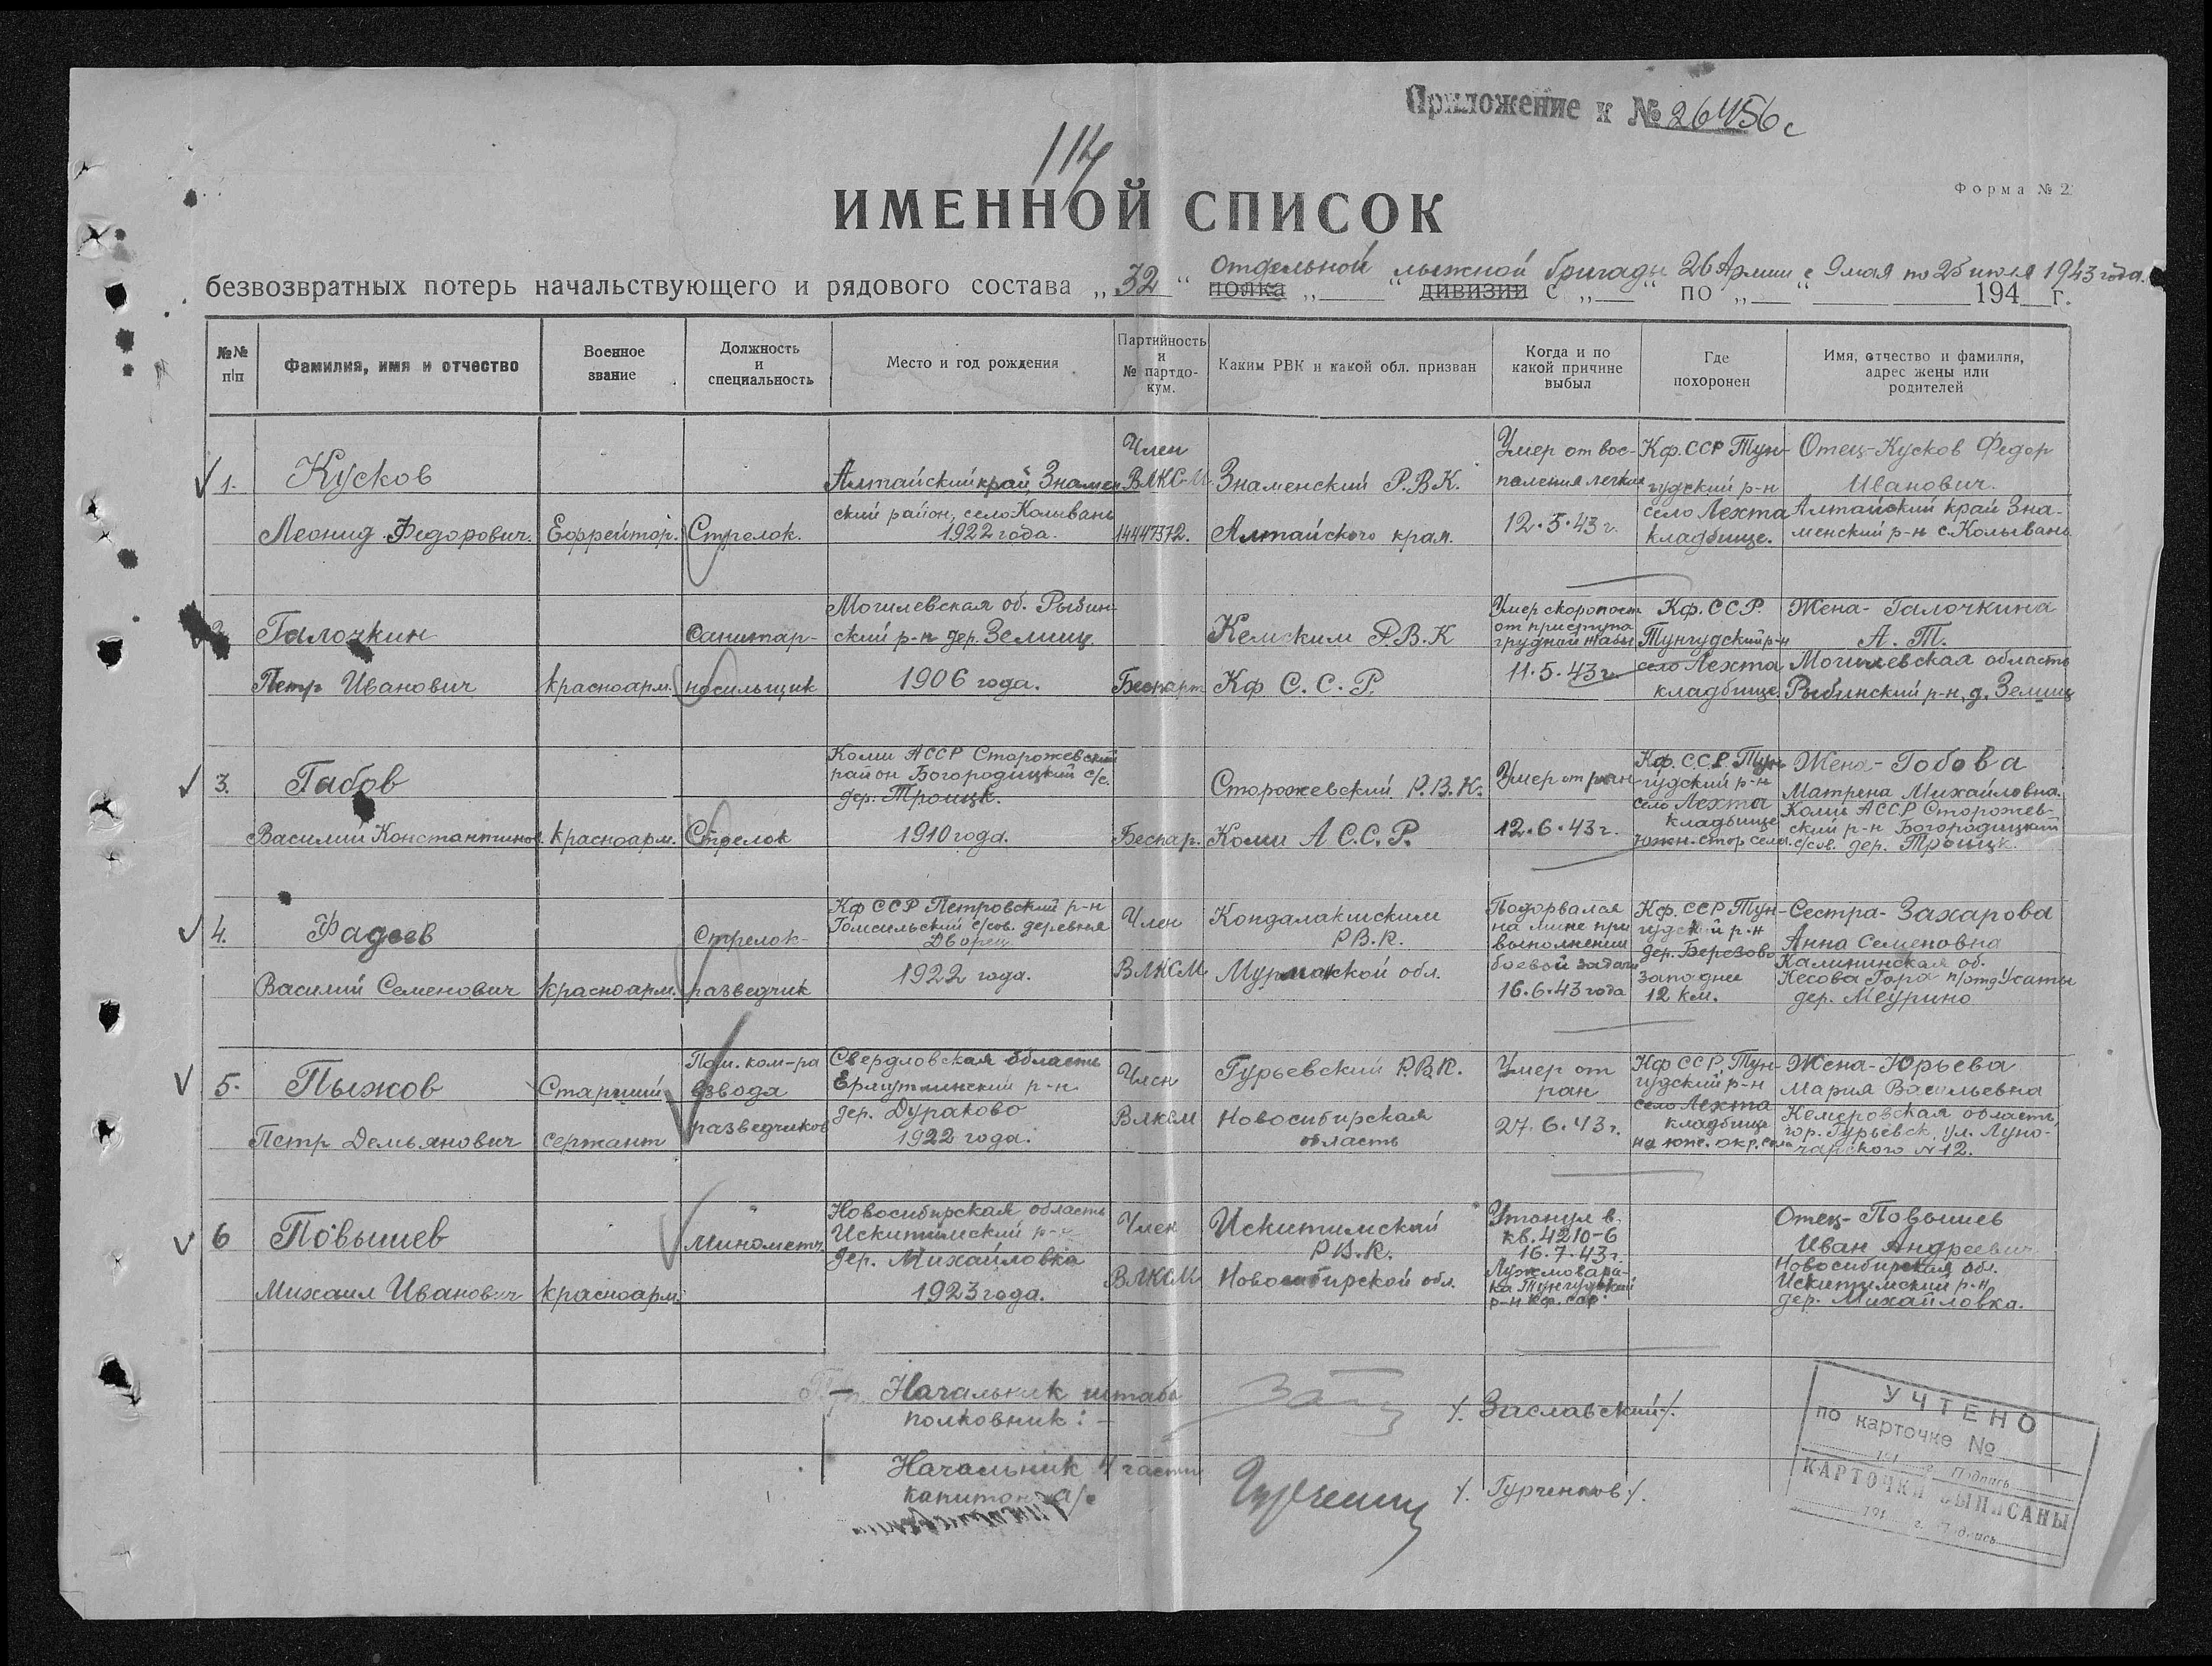 Приложение к № 26456с
114
Форма № 2
ИМЕННОЙ СПИСОК
безвозвратных потерь начальствующего и рядового состава „32“ полка „ “ дивизии с „ “ по „ “ 194 г.
Отдельной лыжной бригады 26 Армии с 9 мая по 25 июля 1943 года.
№№ п/п
Фамилия, имя и отчество
Военное звание
Должность и специальность
Место и год рождения
Партийность и № партдокум.
Каким РВК и какой обл. призван
Когда и по какой причине выбыл
Где похоронен
Имя, отчество и фамилия, адрес жены или родителей
1.
Кусков
Леонид Федорович.
Ефрейтор.
Стрелок.
Алтайский край, Знамен
ский район, село Колывань
1922 года.
Член
ВЛКСМ
14447372.
Знаменский Р.В.К.
Алтайского края.
Умер от вос-
паления легких
12.5.43 г.
Кф.ССР Тун-
гудский р-н
село Лехта
кладбище.
Отец-Кусков Федор
Иванович.
Алтайский край Зна-
менский р-н с.Колывань
2.
Галочкин
Петр Иванович
красноарм.
Санитар-
носильщик
Могилевская об. Рыбин-
ский р-н дер. Землиц
1906 года.
Беспарт
Кемским Р.В.К
Кф С.С.Р.
Умер скоропост.
от приступа
грудной жабы
11.5.43 г.
Кф.ССР.
Тунгудский р-н
село Лехта
кладбище.
Жена- Галочкина
А. Т.
Могилевская область
Рыбинский р-н, д. Землиц
3.
Габов
Василий Константинов.
красноарм.
Стрелок
Коми АССР Сторожевский
район Богородицкий с/с.
дер. Троицк.
1910 года.
Беспар.
Сторожевский Р.В.К.
Коми А С.С.Р.
Умер от ран
12.6.43 г.
Кф.ССР Тун-
гудский р-н
село Лехта
кладбище
южн.стор села.
Жена- Гобова
Матрена Михайловна.
Коми АССР Сторожев-
ский р-н Богородицкий
с/сов. дер. Троицк.
4.
Фадеев
Василий Семенович
красноарм.
Стрелок-
разведчик
Кф ССР Петровский р-н
с/сов. деревня
Дворец
1922 года.
Член
ВЛКСМ
Кондалакшским
РВ.К.
Мурманской обл.
Подорвался
на мине при
выполнении
боевой задачи
16.6.43 года
Кф.ССР Тун-
гудский р-н
дер. Березово
западнее
12 км.
Сестра- Захарова
Анна Семеновна
Калининская об.
Кесова Гора п/отд Усаты
дер. Меурино
5.
Пыжов
Петр Демьянович
Старший
сержант
Пом. ком-ра
взвода
разведчиков
Свердловская область
р-н
дер. Дураково
1922 года.
Член
ВЛКСМ
Гурьевский Р.В.К.
Новосибирская
область
Умер от
ран
27.6.43 г.
Кф ССР, Тун-
гудский р-н
село Лехта
кладбище
на юж. окр.села
Жена-Юрьева
Мария Васильевна
Кемеровская область,
гор. Гурьевск, ул. Луно-
чарского №12.
6
Повышев
Михаил Иванович
красноарм.
Минометч.
Новосибирская область
Искитимский р-н
дер. Михайловка
1923 года.
Член
ВЛКСМ
Искитимский
Р.В.К.
Новосибирской обл.
Утонул в
кв.4210-6
16.7.43 г.
Тунгудский
р-н Кф. сср.
Отец- Повышев
Иван Андреевич
Новосибирская обл.
Искитимский р-н
дер. Михайловка.
Начальник штаба
полковник: -
/. Заславский/.
Начальник 4 части
капитон а/с
/. Гурченков/.
УЧТЕНО
по карточке №
194 г. Подпись
КАРТОЧКИ ВЫПИСАНЫ
194 г. Подпись